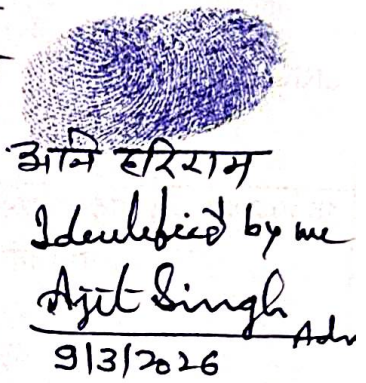 आनि हरिराम
Identified by me
Ajit Singh
Adv
9/3/2026